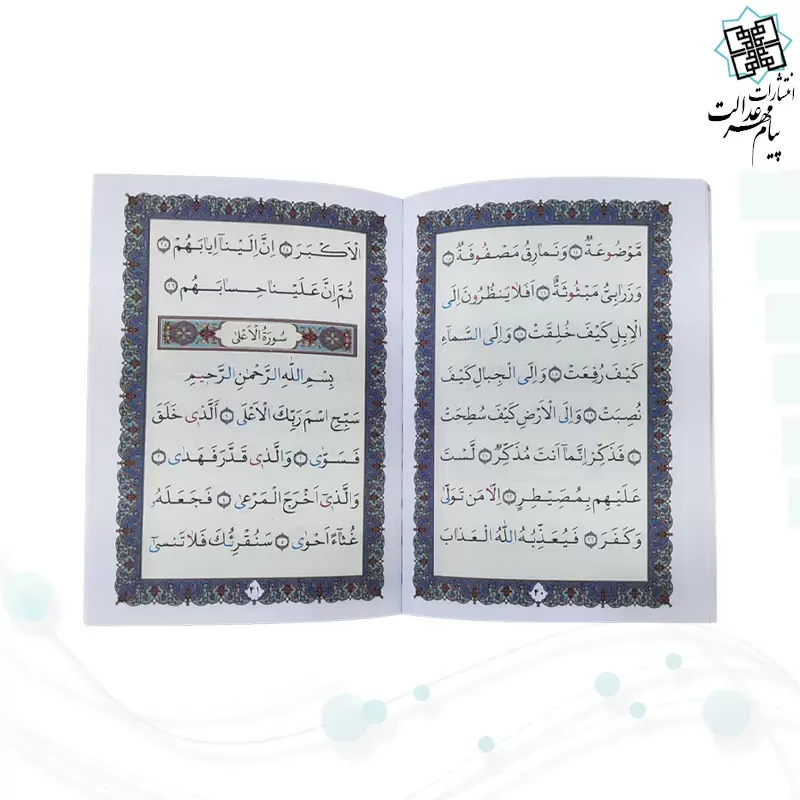 انتشارات
پیام مهر عدالت
مَّوْضُوعَةٌ ۝١٤ وَ نَمارِقُ مَصْفُوفَةٌ ۝١٥
وَ زَرابِيُّ مَبْثُوثَةٌ ۝١٦ اَفَلا يَنْظُرُونَ اِلَى
الْاِبِلِ كَيْفَ خُلِقَتْ ۝١٧ وَ اِلَى السَّمآءِ
كَيْفَ رُفِعَتْ ۝١٨ وَ اِلَى الْجِبالِ كَيْفَ
نُصِبَتْ ۝١٩ وَ اِلَى الْاَرْضِ كَيْفَ سُطِحَتْ
۝٢٠ فَذَكِّرْ اِنَّمآ اَنْتَ مُذَكِّرٌ ۝٢١ لَسْتَ
عَلَيْهِمْ بِمُصَيْطِرٍ ۝٢٢ اِلّا مَنْ تَوَلّىٰ
وَ كَفَرَ ۝٢٣ فَيُعَذِّبُهُ اللّٰهُ الْعَذابَ
٢٠
الْاَكْبَرَ ۝٢٤ اِنَّ اِلَيْنآ اِيابَهُمْ ۝٢٥
ثُمَّ اِنَّ عَلَيْنا حِسابَهُمْ ۝٢٦
سُورَةُ الْاَعْلىٰ
بِسْمِ اللّٰهِ الرَّحْمٰنِ الرَّحيمِ
سَبِّحِ اسْمَ رَبِّكَ الْاَعْلَى ۝١ اَلَّذى خَلَقَ
فَسَوّىٰ ۝٢ وَ الَّذى قَدَّرَ فَهَدىٰ ۝٣
وَ الَّذىٓ اَخْرَجَ الْمَرْعىٰ ۝٤ فَجَعَلَهُ
غُثآءً اَحْوىٰ ۝٥ سَنُقْرِئُكَ فَلا تَنْسىٰٓ
٢١